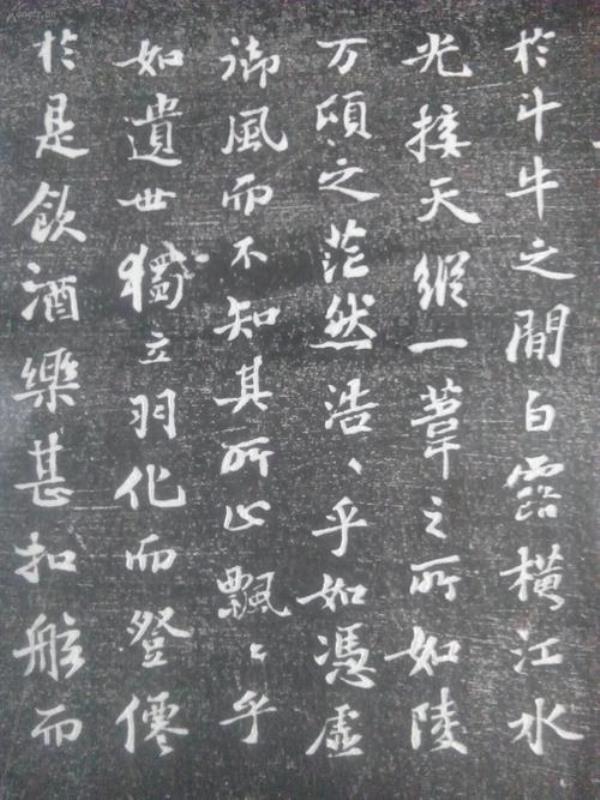 於斗牛之間白露橫江水
光接天縱一葦之所如陵
万頃之茫然浩〻乎如憑虛
御風而不知其所止飄〻乎
如遺世獨立羽化而登僊
於是飲酒樂甚扣舷而